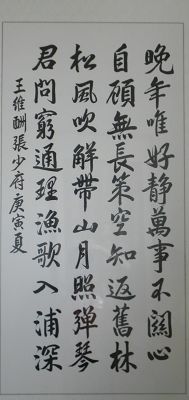 晚年唯好静萬事不關心
自顧無長策空知返舊林
松風吹解帶山月照彈琴
君問窮通理漁歌入浦深
王維酬張少府庚寅夏